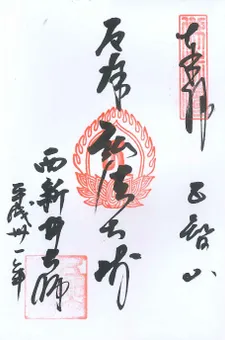 奉拝
五智山
厄除 弘法大師
西新井大師
平成廿一年